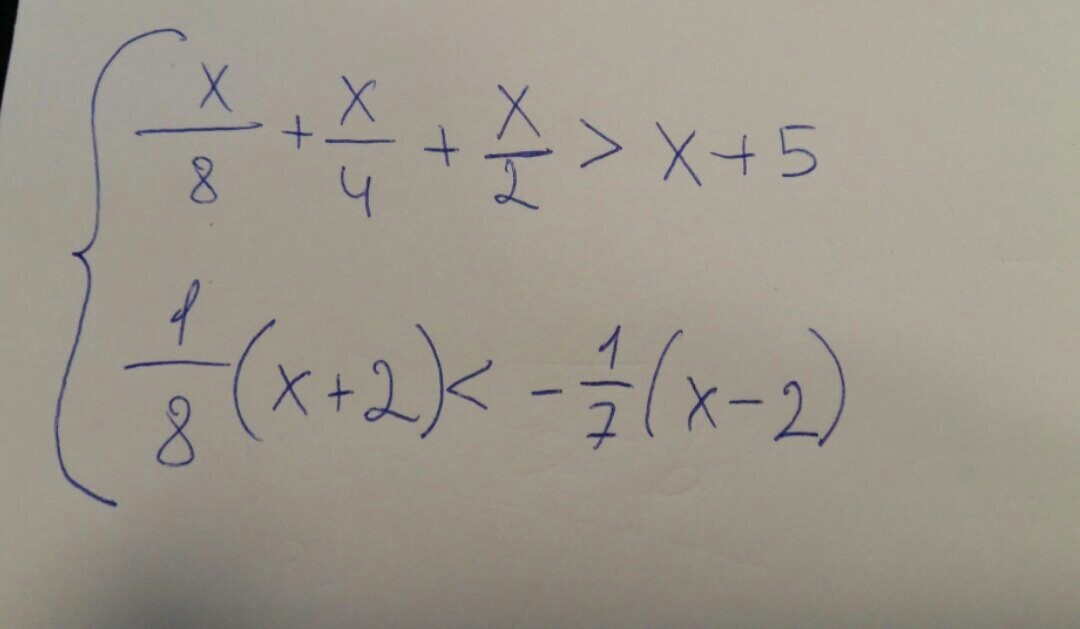 x/8 + x/4 + x/2 > x+5
1/8 (x+2) < - 1/7 (x-2)